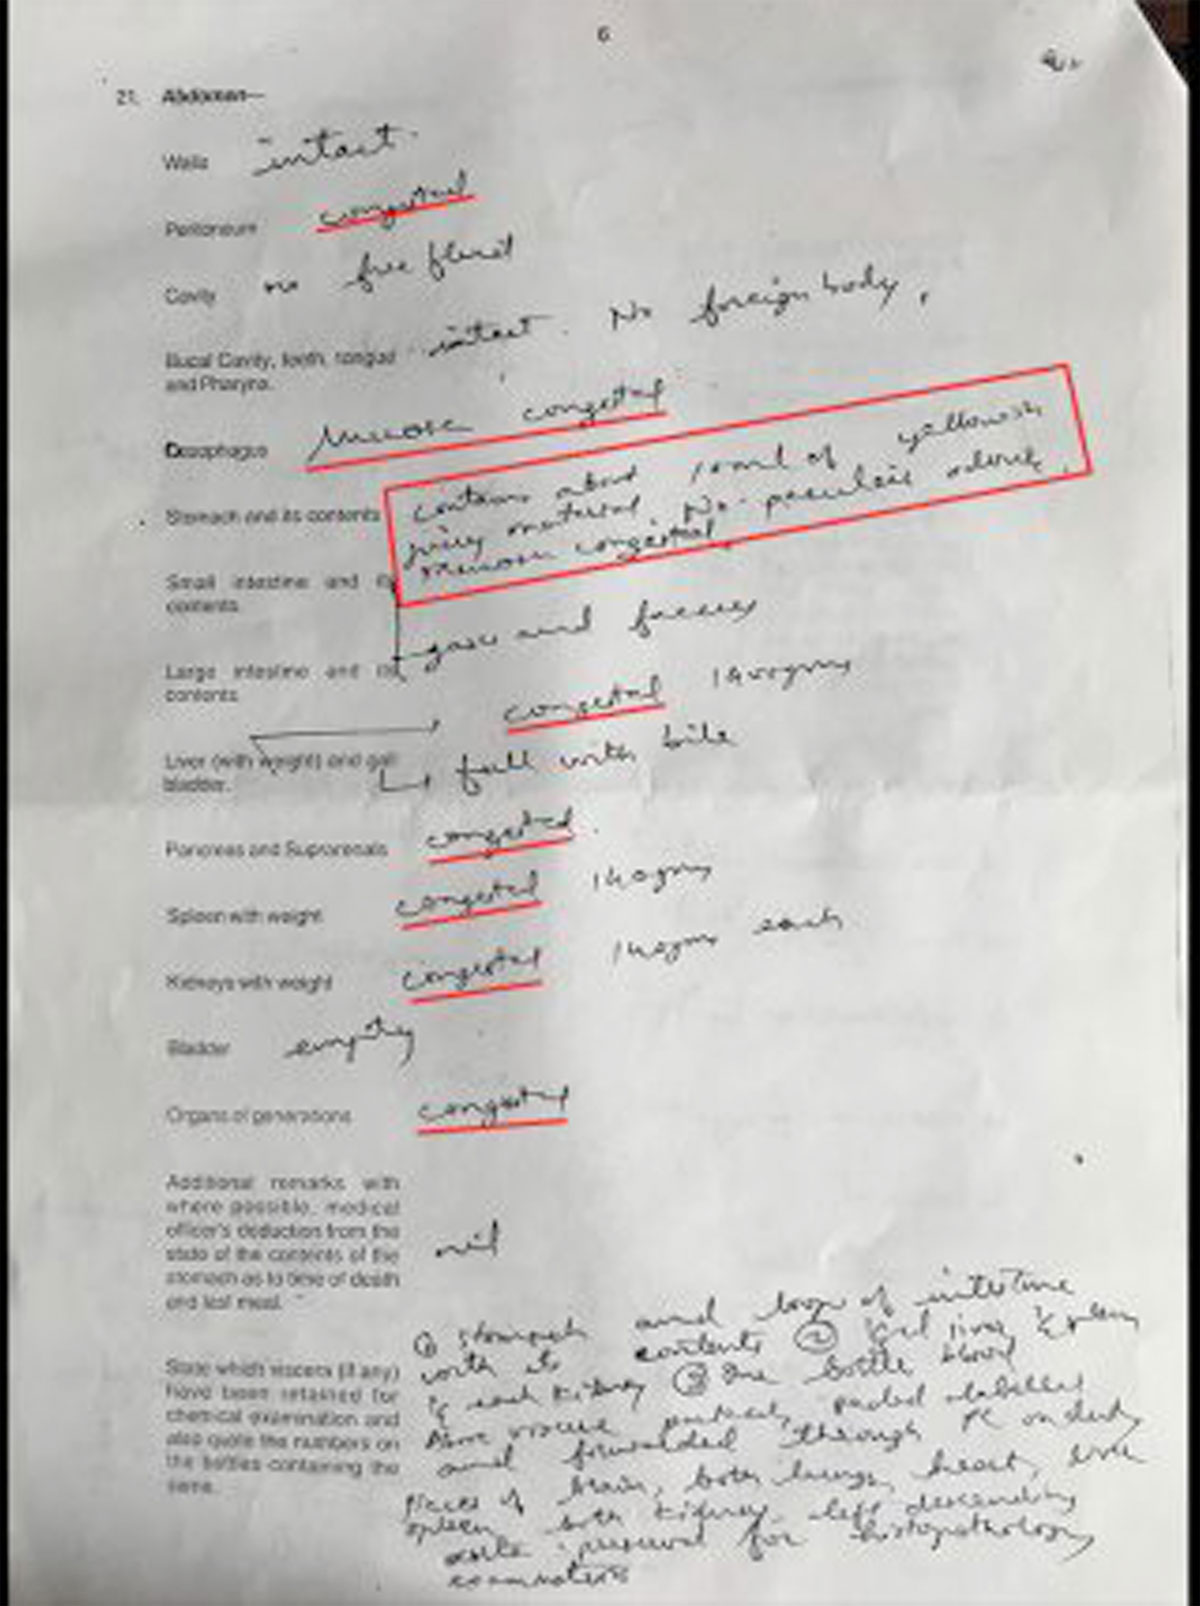 6
21. Abdomen—
Walls intact.
Peritoneum congested
Cavity no free fluid
Bucal Cavity, teeth, tongue intact. No foreign body,
and Pharynx.
Oesophagus Mucosa congested
contains about 100ml of yellowish
Stomach and its contents material No peculair odour,
mucosa congested,
Small intestine and its
contents.
gases and faeces
Large intestine and its
contents.
congested 1400gms
Liver (with weight) and gall
bladder. full with bile
Pancreas and Suprarenals congested.
Spleen with weight congested 140gms
Kidneys with weight congested 140gms each
Bladder empty
Organs of generations congested
Additional remarks with
where possible, medical
officer's deduction from the
state of the contents of the nil
stomach as to time of death
and last meal.
① Stomach and loop of intestine
with its contents ②
each kidney ③ One bottle blood
State which viscera (if any)
have been retained for
chemical examination and
also quote the numbers on
the bottles containing the
same.
Above viscera sealed labelled
and forwarded through PC on duty
Pieces of brain, both lungs, heart, liver
spleen, both kidney, left descending
for histopathology
examinations